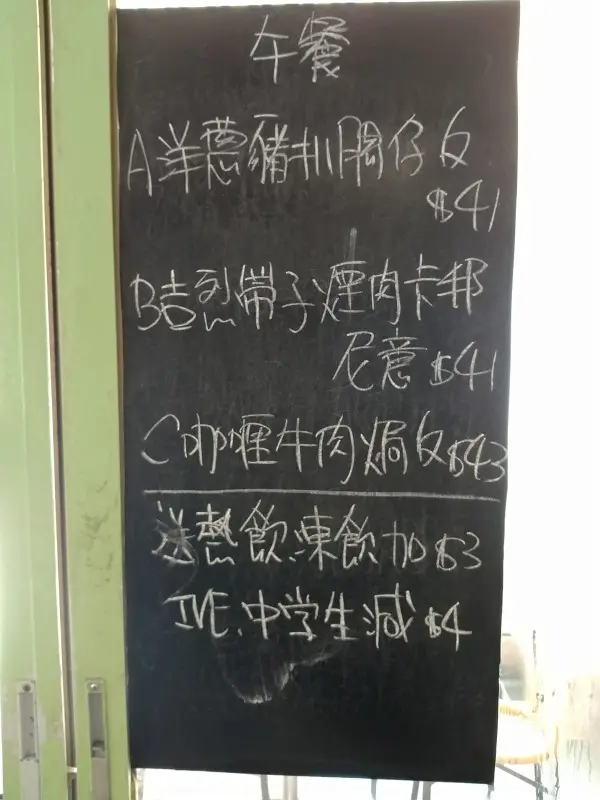 午餐
A洋蔥豬扒腸仔反
$41
B吉烈帶子煙肉卡邦
尼意$41
C咖喱牛肉焗反$43
送熱飲.凍飲加$3
IVE.中学生減$4